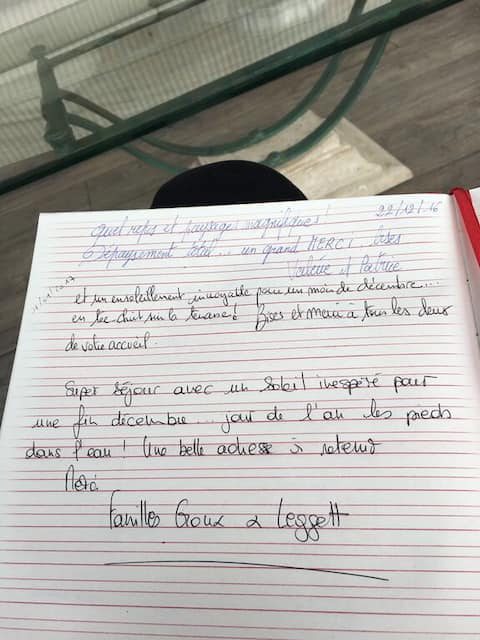 Quel repos et paysages magnifiques! 22/12/16
Dépaysement total... un grand MERCI. Bises
Valérie et Patrice
et un ensoleillement incroyable pour un mois de décembre...
en tee-shirt sur la terrasse! Bises et merci à tous les deux
de votre accueil.
Super séjour avec un soleil inespéré pour
une fin décembre... jour de l'an les pieds
dans l'eau! Une belle adresse à retenir
Merci.
Familles Groux & Leggett